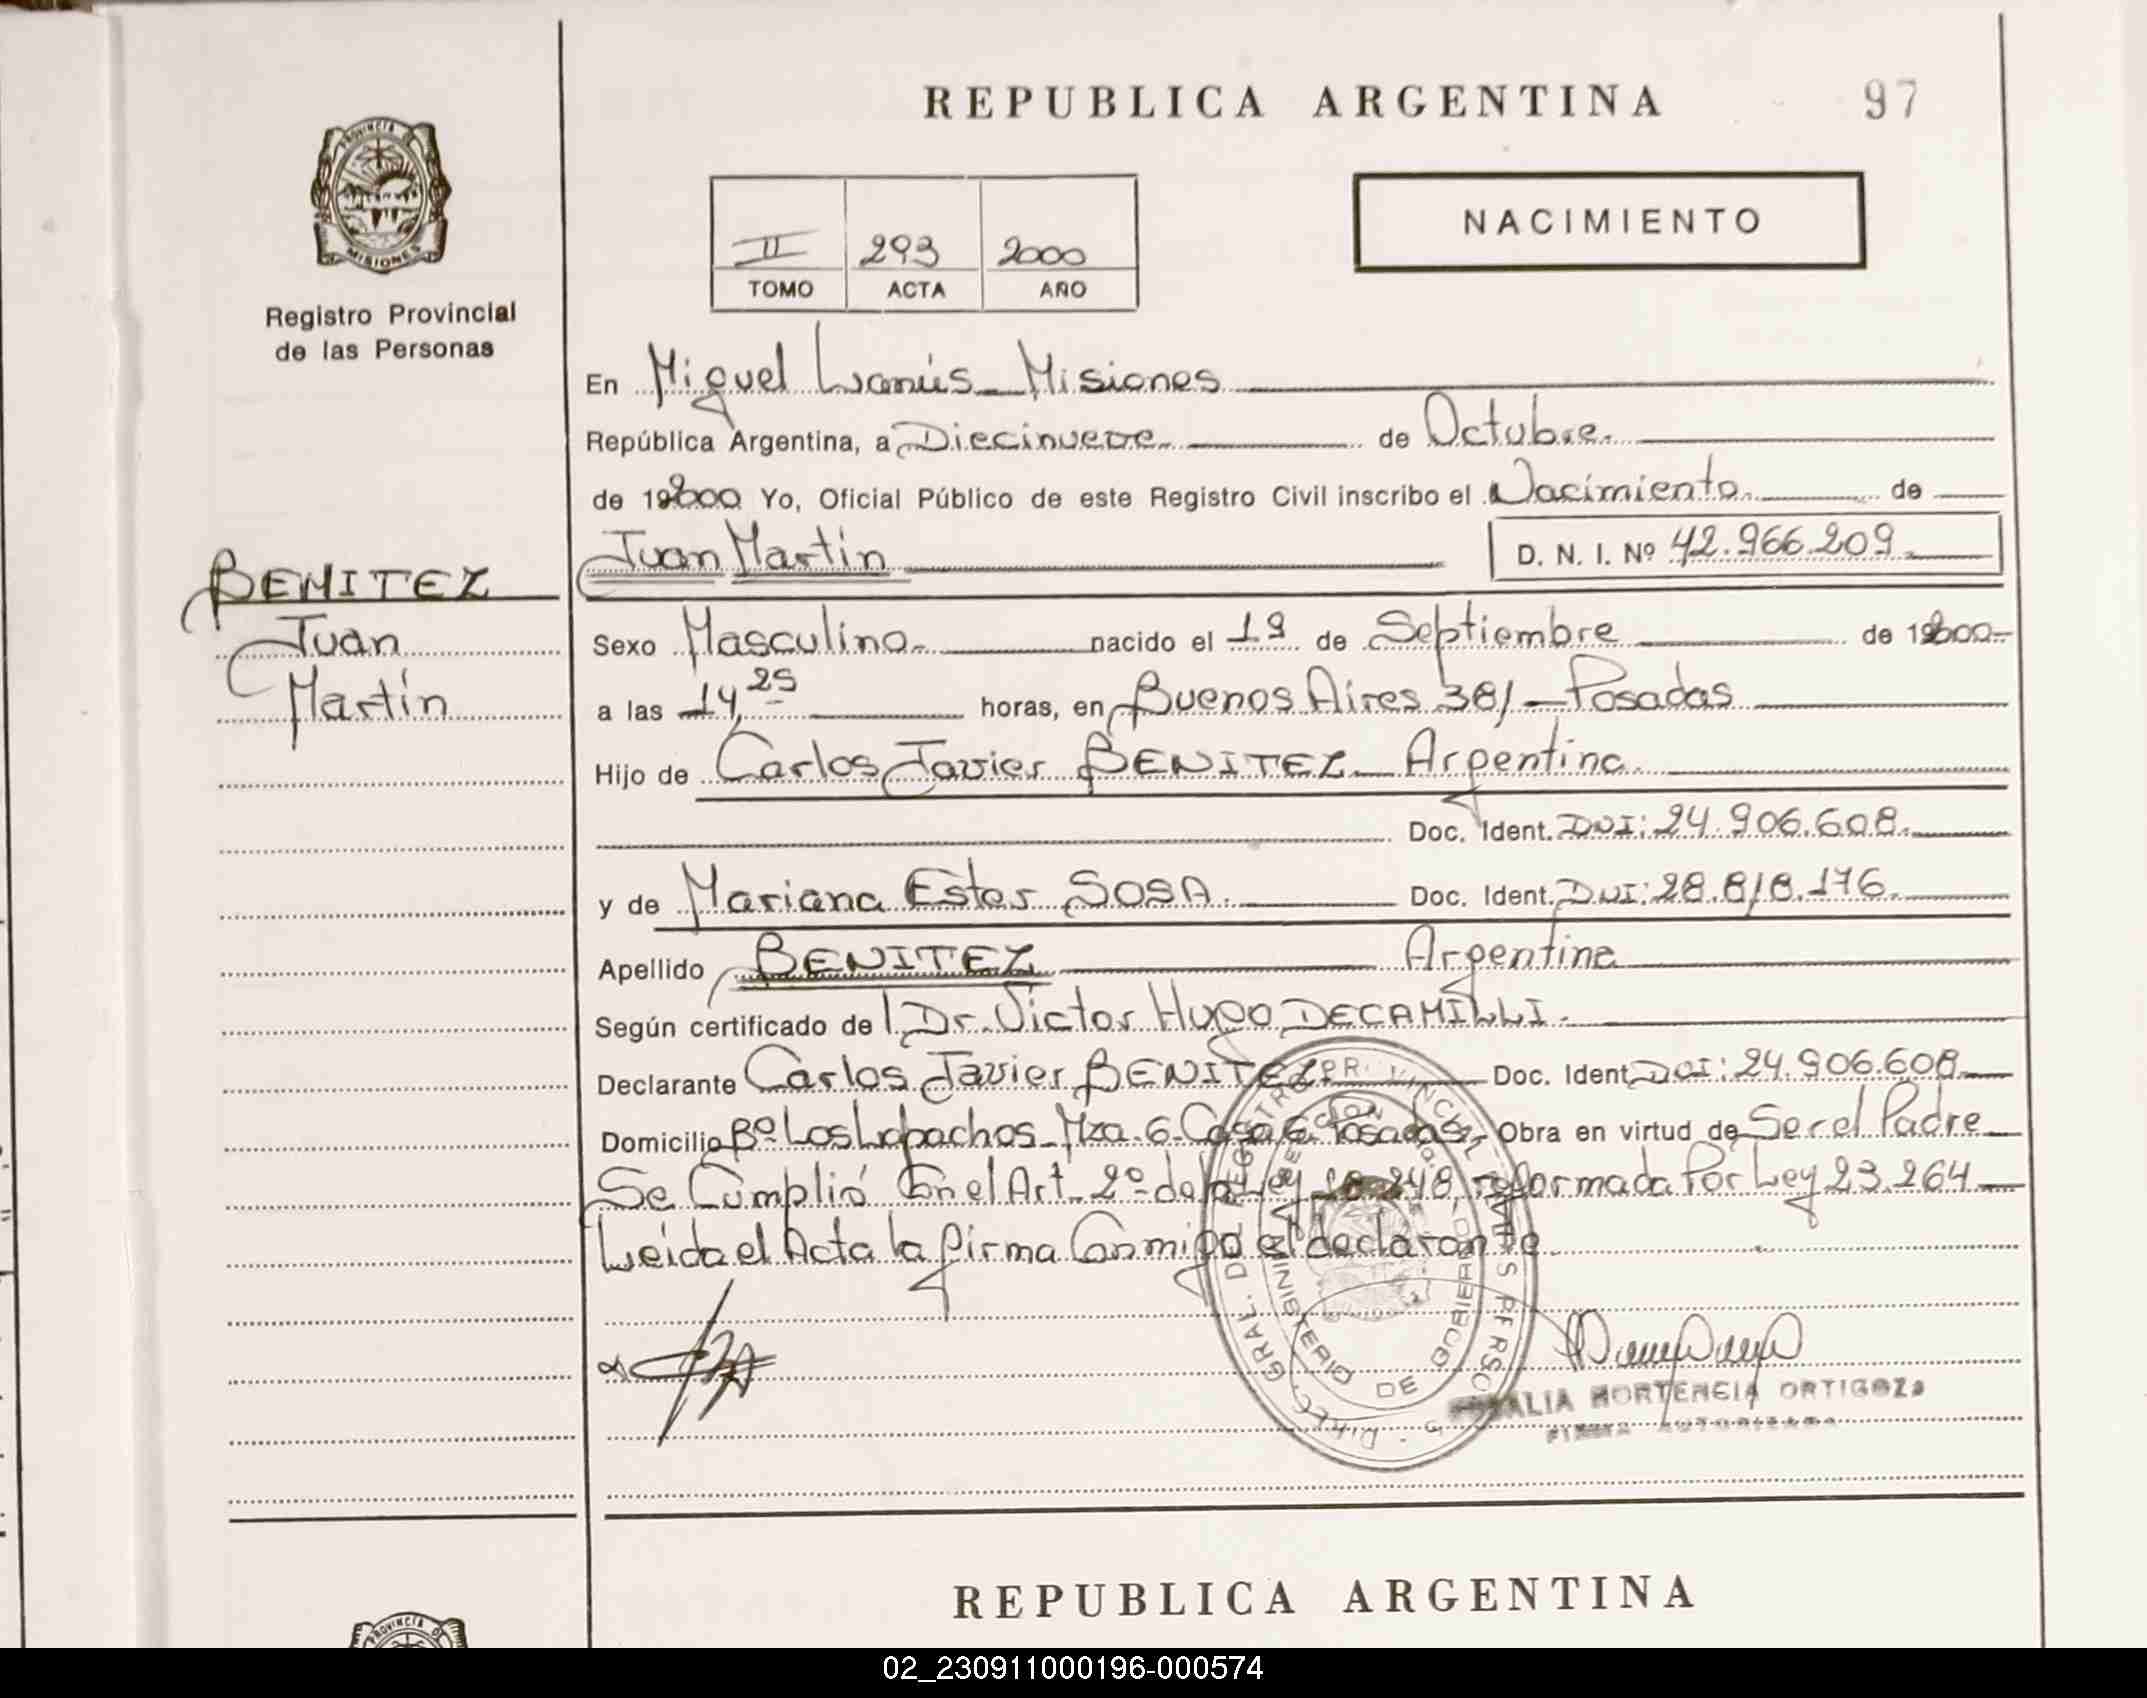 REPUBLICA ARGENTINA
97
PROVINCIA DE
MISIONES
Registro Provincial
de las Personas
II 293 2000
TOMO ACTA AÑO
NACIMIENTO
En Miguel Lanús - Misiones
República Argentina, a Diecinueve de Octubre
de 2000 Yo, Oficial Público de este Registro Civil inscribo el Nacimiento de
Juan Martín D. N. I. Nº 42.966.209
BENITEZ
Juan
Martín
Sexo Masculino nacido el 19 de Septiembre de 2000
a las 14,25 horas, en Buenos Aires 381 - Posadas
Hijo de Carlos Javier BENITEZ - Argentino
Doc. Ident. DNI: 24.906.608
y de Mariana Ester SOSA. Doc. Ident. DNI: 28.818.176
Apellido BENITEZ Argentina
Según certificado de l Dr. Victor Hugo DECAMILLI.
Declarante Carlos Javier BENITEZ Doc. Ident DNI: 24.906.608
Domicilio Bº Los Lapachos - Mza. 6 - Casa 6 Posadas - Obra en virtud de Ser el Padre
Se Cumplió Con el Art. 2º de la Ley 18.248, reformada Por Ley 23.264
Leida el Acta la firma Conmigo el declarante
MINISTERIO DE GOBIERNO
HORTENCIA ORTIGOZA
FIRMA AUTORIZADA
REPUBLICA ARGENTINA
PROVINCIA DE
02_230911000196-000574